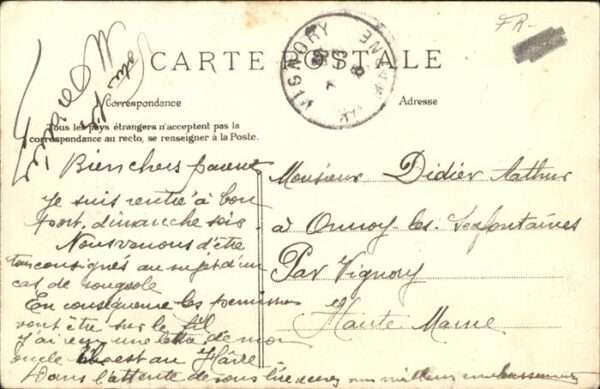 FR-
CARTE POSTALE
Correspondance
Adresse
Tous les pays étrangers n'acceptent pas la
correspondance au recto, se renseigner à la Poste.
VIGNORY
Bien chers parents
Je suis rentré à bon
port, dimanche soir
Nous venons d'être
tous consignés au sujet d'un
cas de rougeole
En conséquence les permissions
vont être sur le fil
J'ai reçu une lettre de mon
oncle est au Hâvre
Dans l'attente de vous lire recevez mes meilleurs embrassements
Votre fils
Monsieur Didier Arthur
à Ormoy-les-Sexfontaines
Par Vignory
Haute Marne